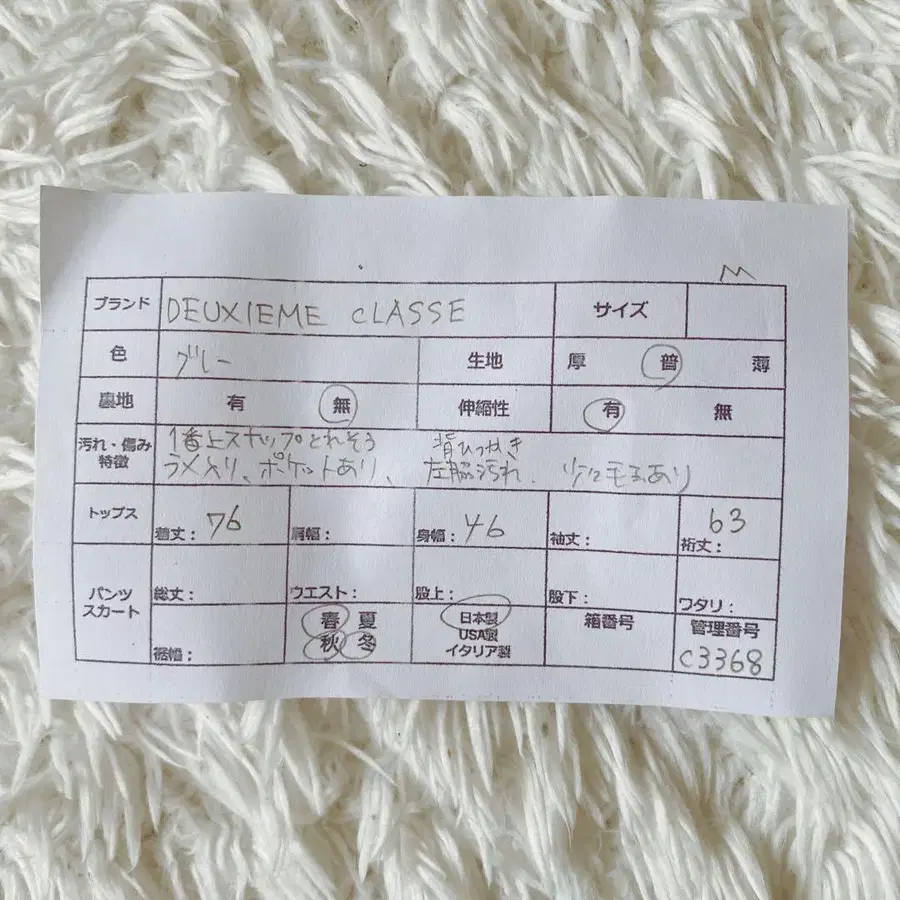 M
ブランド DEUXIEME CLASSE サイズ
色 グレー 生地 厚 普 薄
裏地 有 無 伸縮性 有 無
汚れ・傷み 1番上スナップとれそう 背ひっつき
特徴 ラメ入り、ポケットあり、左脇汚れ、 毛玉あり
トップス 着丈: 76 肩幅: 身幅: 46 袖丈: 裄丈: 63
パンツ 総丈: ウエスト: 股上: 股下: ワタリ:
スカート 裾幅: 春 夏 日本製 箱番号 管理番号
秋 冬 USA製 C3368
イタリア製